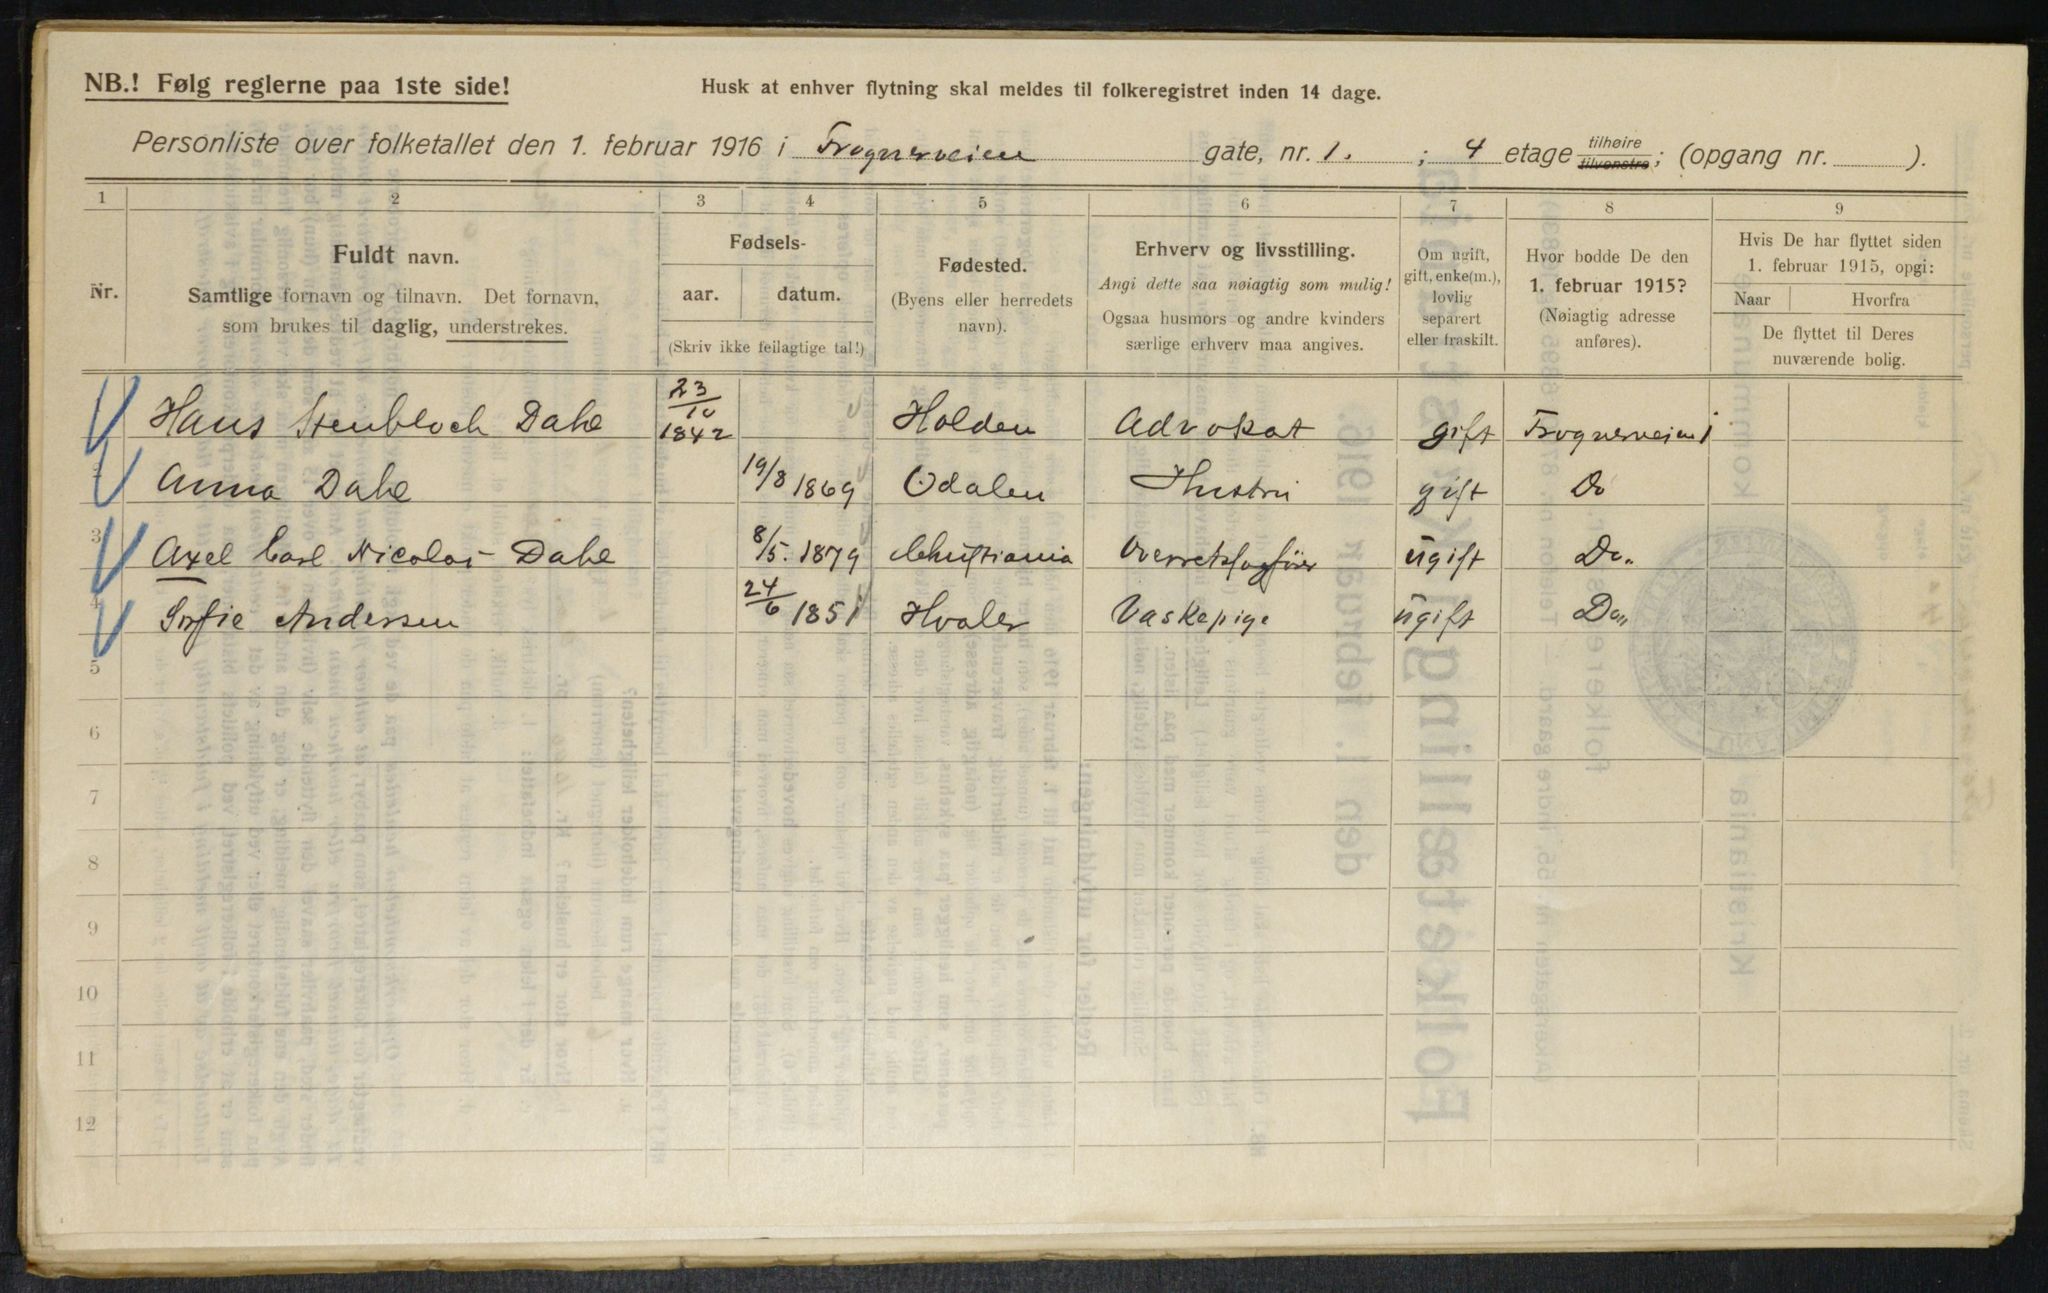 NB.! Følg reglerne paa 1ste side!
Husk at enhver flytning skal meldes til folkeregistret inden 14 dage.
Personliste over folketallet den 1. februar 1916 i Frognerveien gate, nr. 1. ; 4 etage tilhøire tilvenstre; (opgang nr. ).
1 2 3 4 5 6 7 8 9
Nr.
Fuldt navn.
Samtlige fornavn og tilnavn. Det fornavn,
som brukes til daglig, understrekes.
Fødsels-
aar. datum.
(Skriv ikke feilagtige tal!)
Fødested.
(Byens eller herredets
navn).
Erhverv og livsstilling.
Angi dette saa nøiagtig som mulig!
Ogsaa husmors og andre kvinders
særlige erhverv maa angives.
Om ugift,
gift, enke(m.),
lovlig
separert
eller fraskilt.
Hvor bodde De den
1. februar 1915?
(Nøiagtig adresse
anføres).
Hvis De har flyttet siden
1. februar 1915, opgi:
Naar Hvorfra
De flyttet til Deres
nuværende bolig.
Hans Stenbloch Dahl 23/10 1842 Holden Advokat gift Frognerveien 1
2 Anna Dahl 19/8 1869 Odalen Hustru gift Do
3 Axel Carl Nicolai Dahl 8/5. 1879 Christiania Overretssagfører ugift Do.
4 Sofie Andersen 24/6 1851 Hvaler Vaskepige ugift Do.
5
6
7
8
9
10
11
12